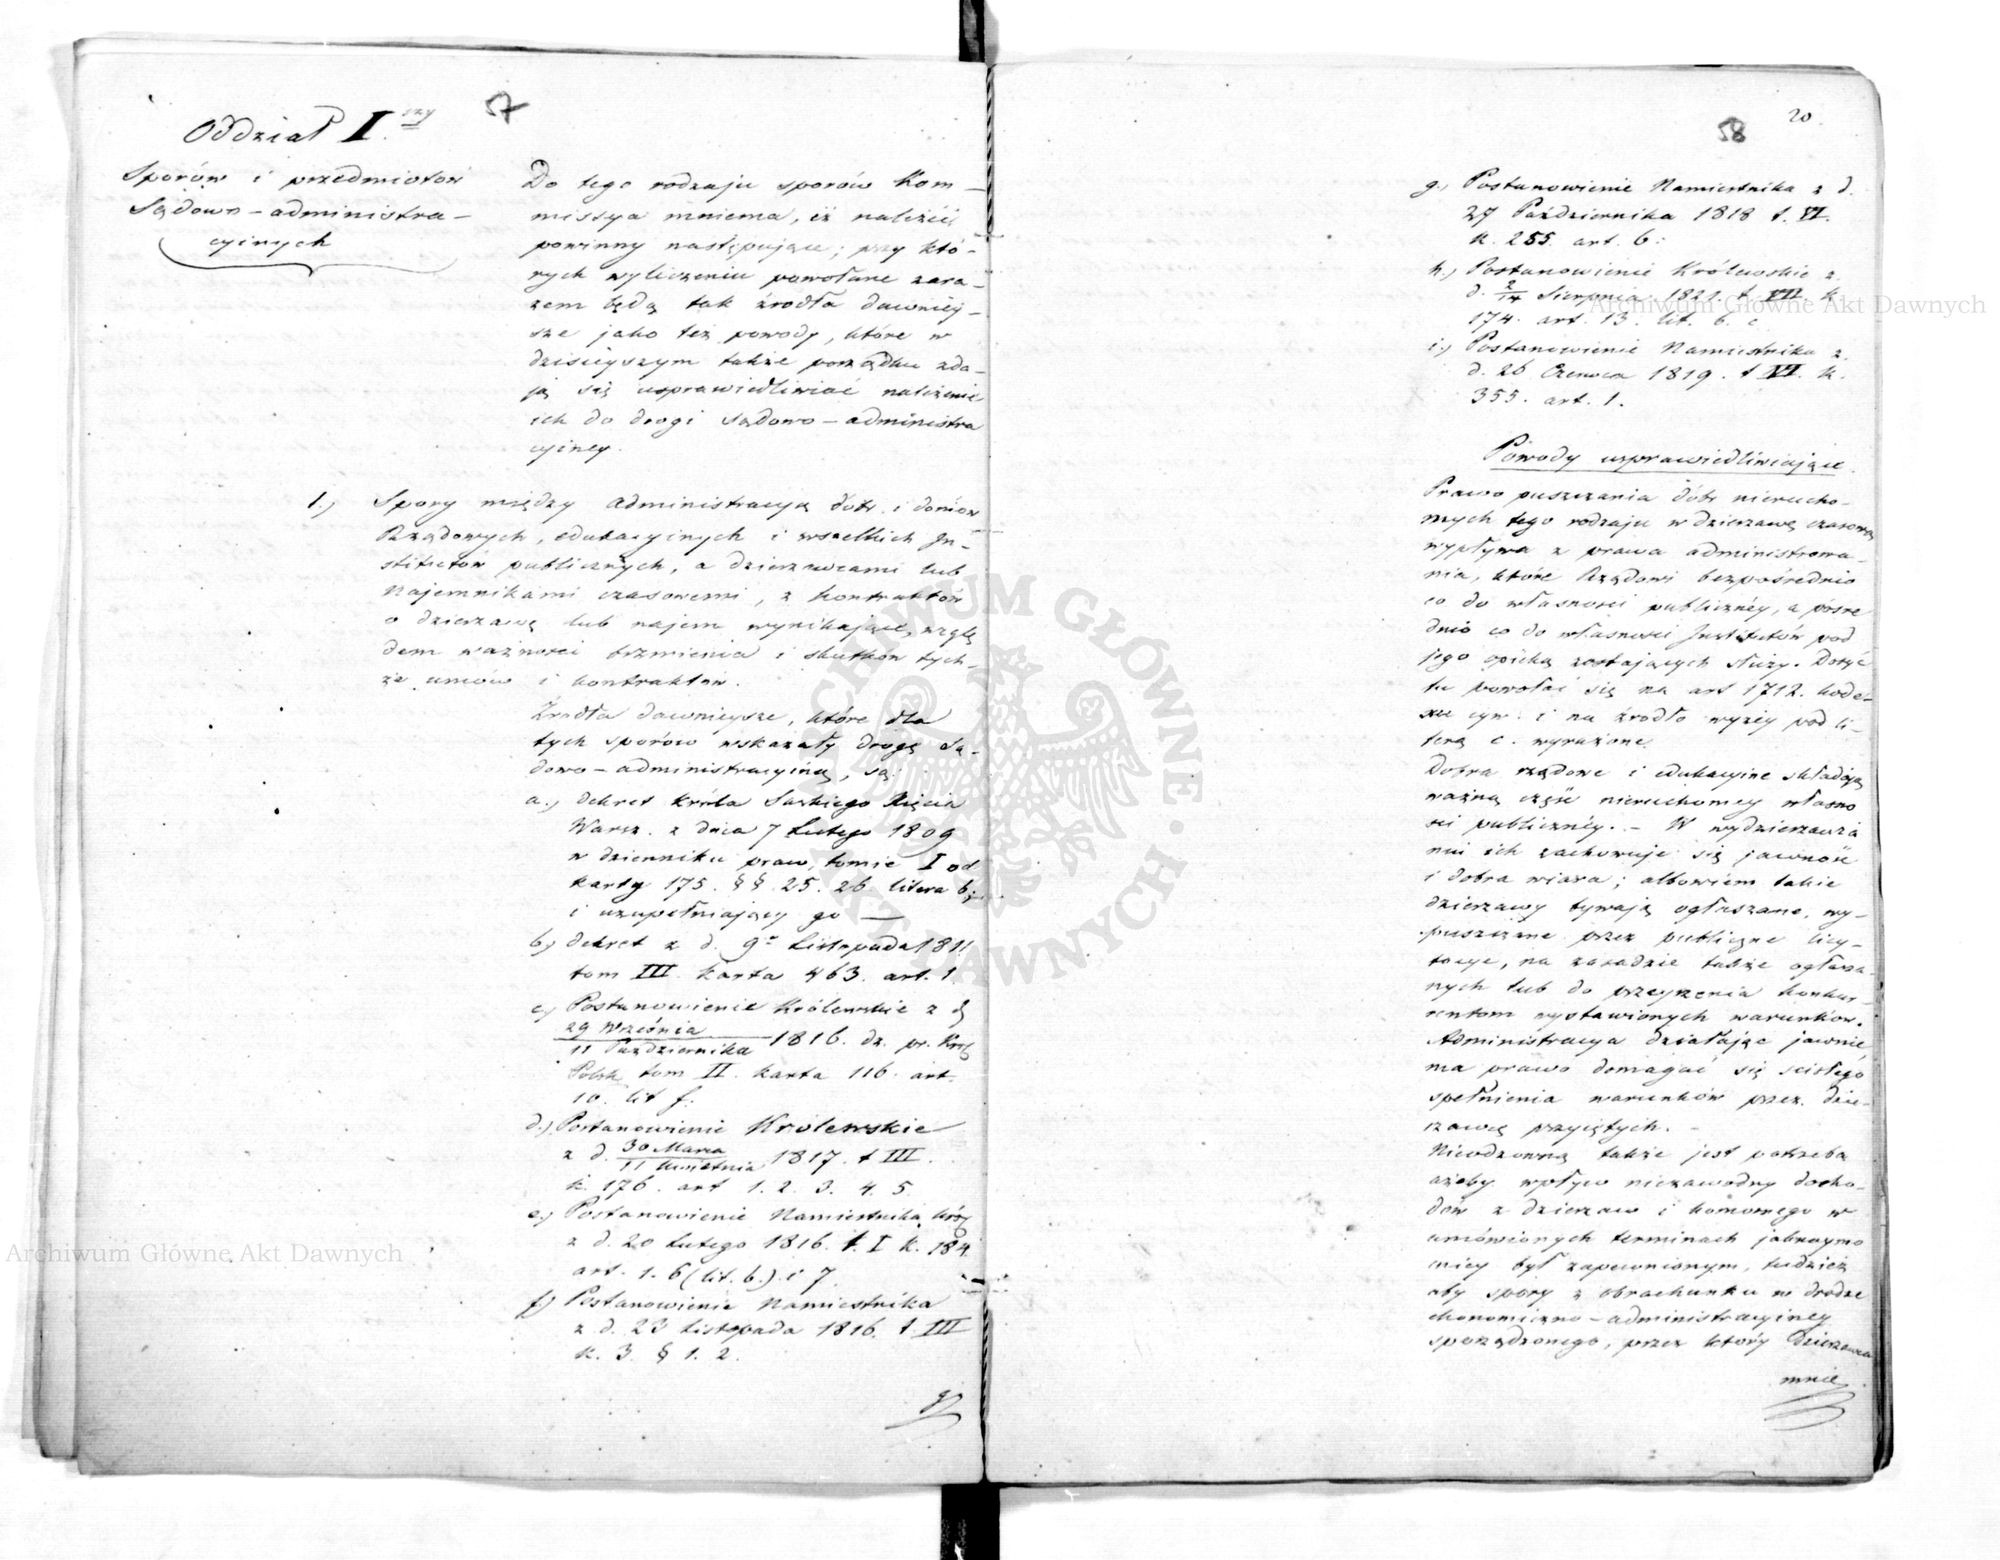 57
Oddział I.szy
Sporów i przedmiotów
Sądowo-administra-
cyinych
Do tego rodzaju sporów Kom-
missya mniema, iż należéć
powinny następujące; przy któ-
rych wyliczeniu powołane zara-
zem będą tak źrodła dawniey-
sze jako też powody, które w
dzisieyszym także porządku zda-
ją się usprawiedliwiać należenie
ich do drogi Sądowo-administra
cyiney.
1.) Spory między Administracyą dóbr i domów
Rządowych, edukacyinych i wszelkich In-
stitutów publicznych, a dzierzawcami lub
Najemnikami czasowemi, z kontraktów
o dzierzawę lub najem wynikające, wzglę
dem ważności brzmienia i skutków tych-
że umów i kontraktów.
Źrodła dawnieysze, które dla
tych sporów wskazały drogę Są-
dowo-administracyiną, są:
a.) dekret Króla Saskiego Xięcia
Warsz. z dnia 7 Lutego 1809
w dzienniku praw, tomie I od
karty 175. §§. 25. 26. litera b;
i uzupełniający go —
b.) dekret z d. 9o Listopada 1811
tom III. karta 463. art. 1.
c.) Postanowienie Królewskie z d
29 Września
11 Października 1816. dz. pr. Król
Polsk. tom II. karta 116. art.
10. lit f.
d.) Postanowienie Królewskie
z d. 30 Marca
11 Kwietnia 1817. t III.
k. 176. art 1. 2. 3. 4. 5.
e.) Postanowienie Namiestnika Król
z d. 20 Lutego 1816. t. I k. 184
art. 1. 6 (lit. b.) i 7.
f.) Postanowienie Namiestnika
z d. 23 Listopada 1816. t. III
k. 3. § 1. 2.
g)
20.
58
g.) Postanowienie Namiestnika z d.
27 Października 1818 t. VI.
k. 255. art. 6:
h.) Postanowienie Królewskie z
d. 2/14 Sierpnia 1821. t. VII. k.
174. art. 13. lit. b. c
i.) Postanowienie Namiestnika z
d. 26 Czerwca 1819. t VI. k.
355. art. 1.
Powody usprawiedliwiające.
Prawo puszczania dóbr nierucho-
mych tego rodzaju w dzierzawę czasową
wypływa z prawa administrowa-
nia, które Rządowi bezpośrednio
co do własności publicznéy, a pośre
dnio co do własności Justitutów pod
jego opieką zostających służy. Dosyć
tu powołać się na art 1712. kode-
xu cyw: i na źrodło wyżéy pod li-
terą c. wyrażone.
Dobra rządowe i edukacyine składają
ważną część nieruchomey własno
ści publicznéy. - W wydzierzawia
niu ich zachowuje się jawność
i dobra wiara; albowiem takie
dzierzawy bywają ogłaszane, wy-
puszczane przez publiczne licy-
tacye, na zasadzie także ogłasza-
nych lub do przeyrzenia konkur-
rentom wystawionych warunków.
Administracya działając jawnie,
ma prawo domagać się scisłego
spełnienia warunków przez dzie-
rzawcę przyiętych. -
Nieodzowną także jest potrzeba
ażeby wpływ niezawodny docho-
dów z dzierzaw i komornego w
umówionych terminach
był zapewnionym, tudzież
aby spory z obrachunku w drodze
ekonomiczno-administracyiney
sporządzonego, przez który Dzierzawca
mnie
Archiwum Główne Akt Dawnych
Archiwum Główne Akt Dawnych
ARCHIWUM GŁÓWNE · AKT DAWNYCH